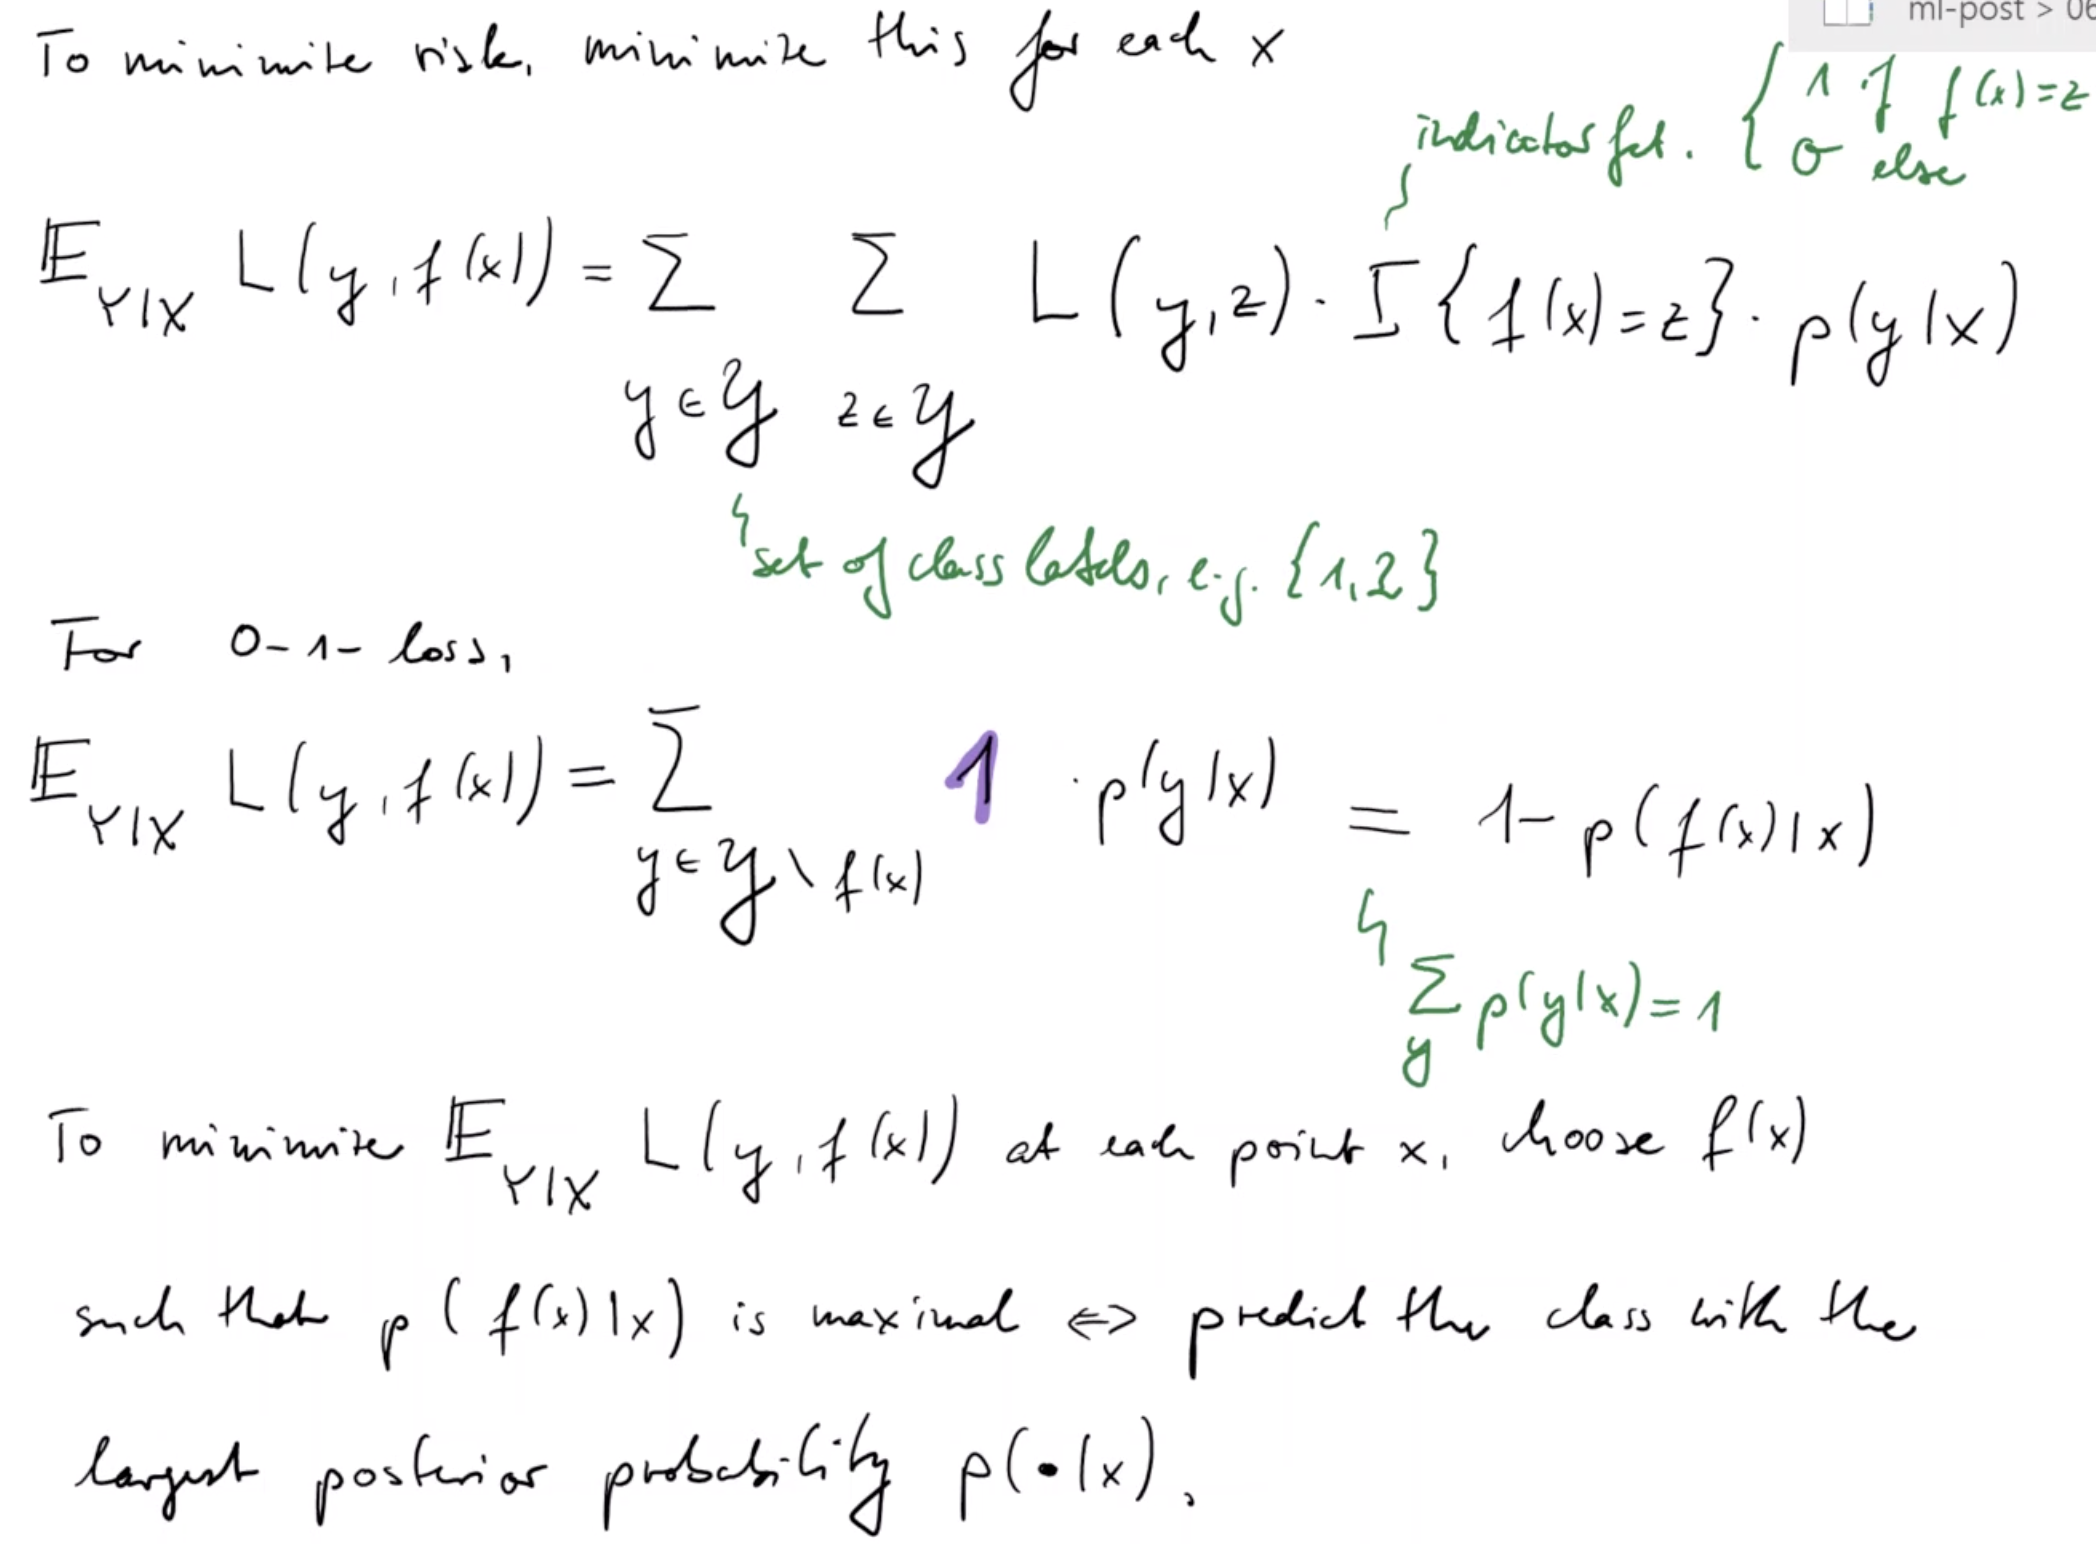 ml-post > 06
To minimize risk, minimize this for each x
indicator fct. { 1 if f(x)=z
0 else
E_{Y|X} L(y, f(x)) = Σ_{y∈𝒴} Σ_{z∈𝒴} L(y,z) · I{f(x)=z} · p(y|x)
set of class labels, e.g. {1,2}
For 0-1-loss,
E_{Y|X} L(y, f(x)) = Σ_{y∈𝒴\f(x)} 1 · p(y|x) = 1-p(f(x)|x)
Σ_y p(y|x)=1
To minimize E_{Y|X} L(y, f(x)) at each point x, choose f(x)
such that p(f(x)|x) is maximal ⇔ predict the class with the
largest posterior probability p(•|x).